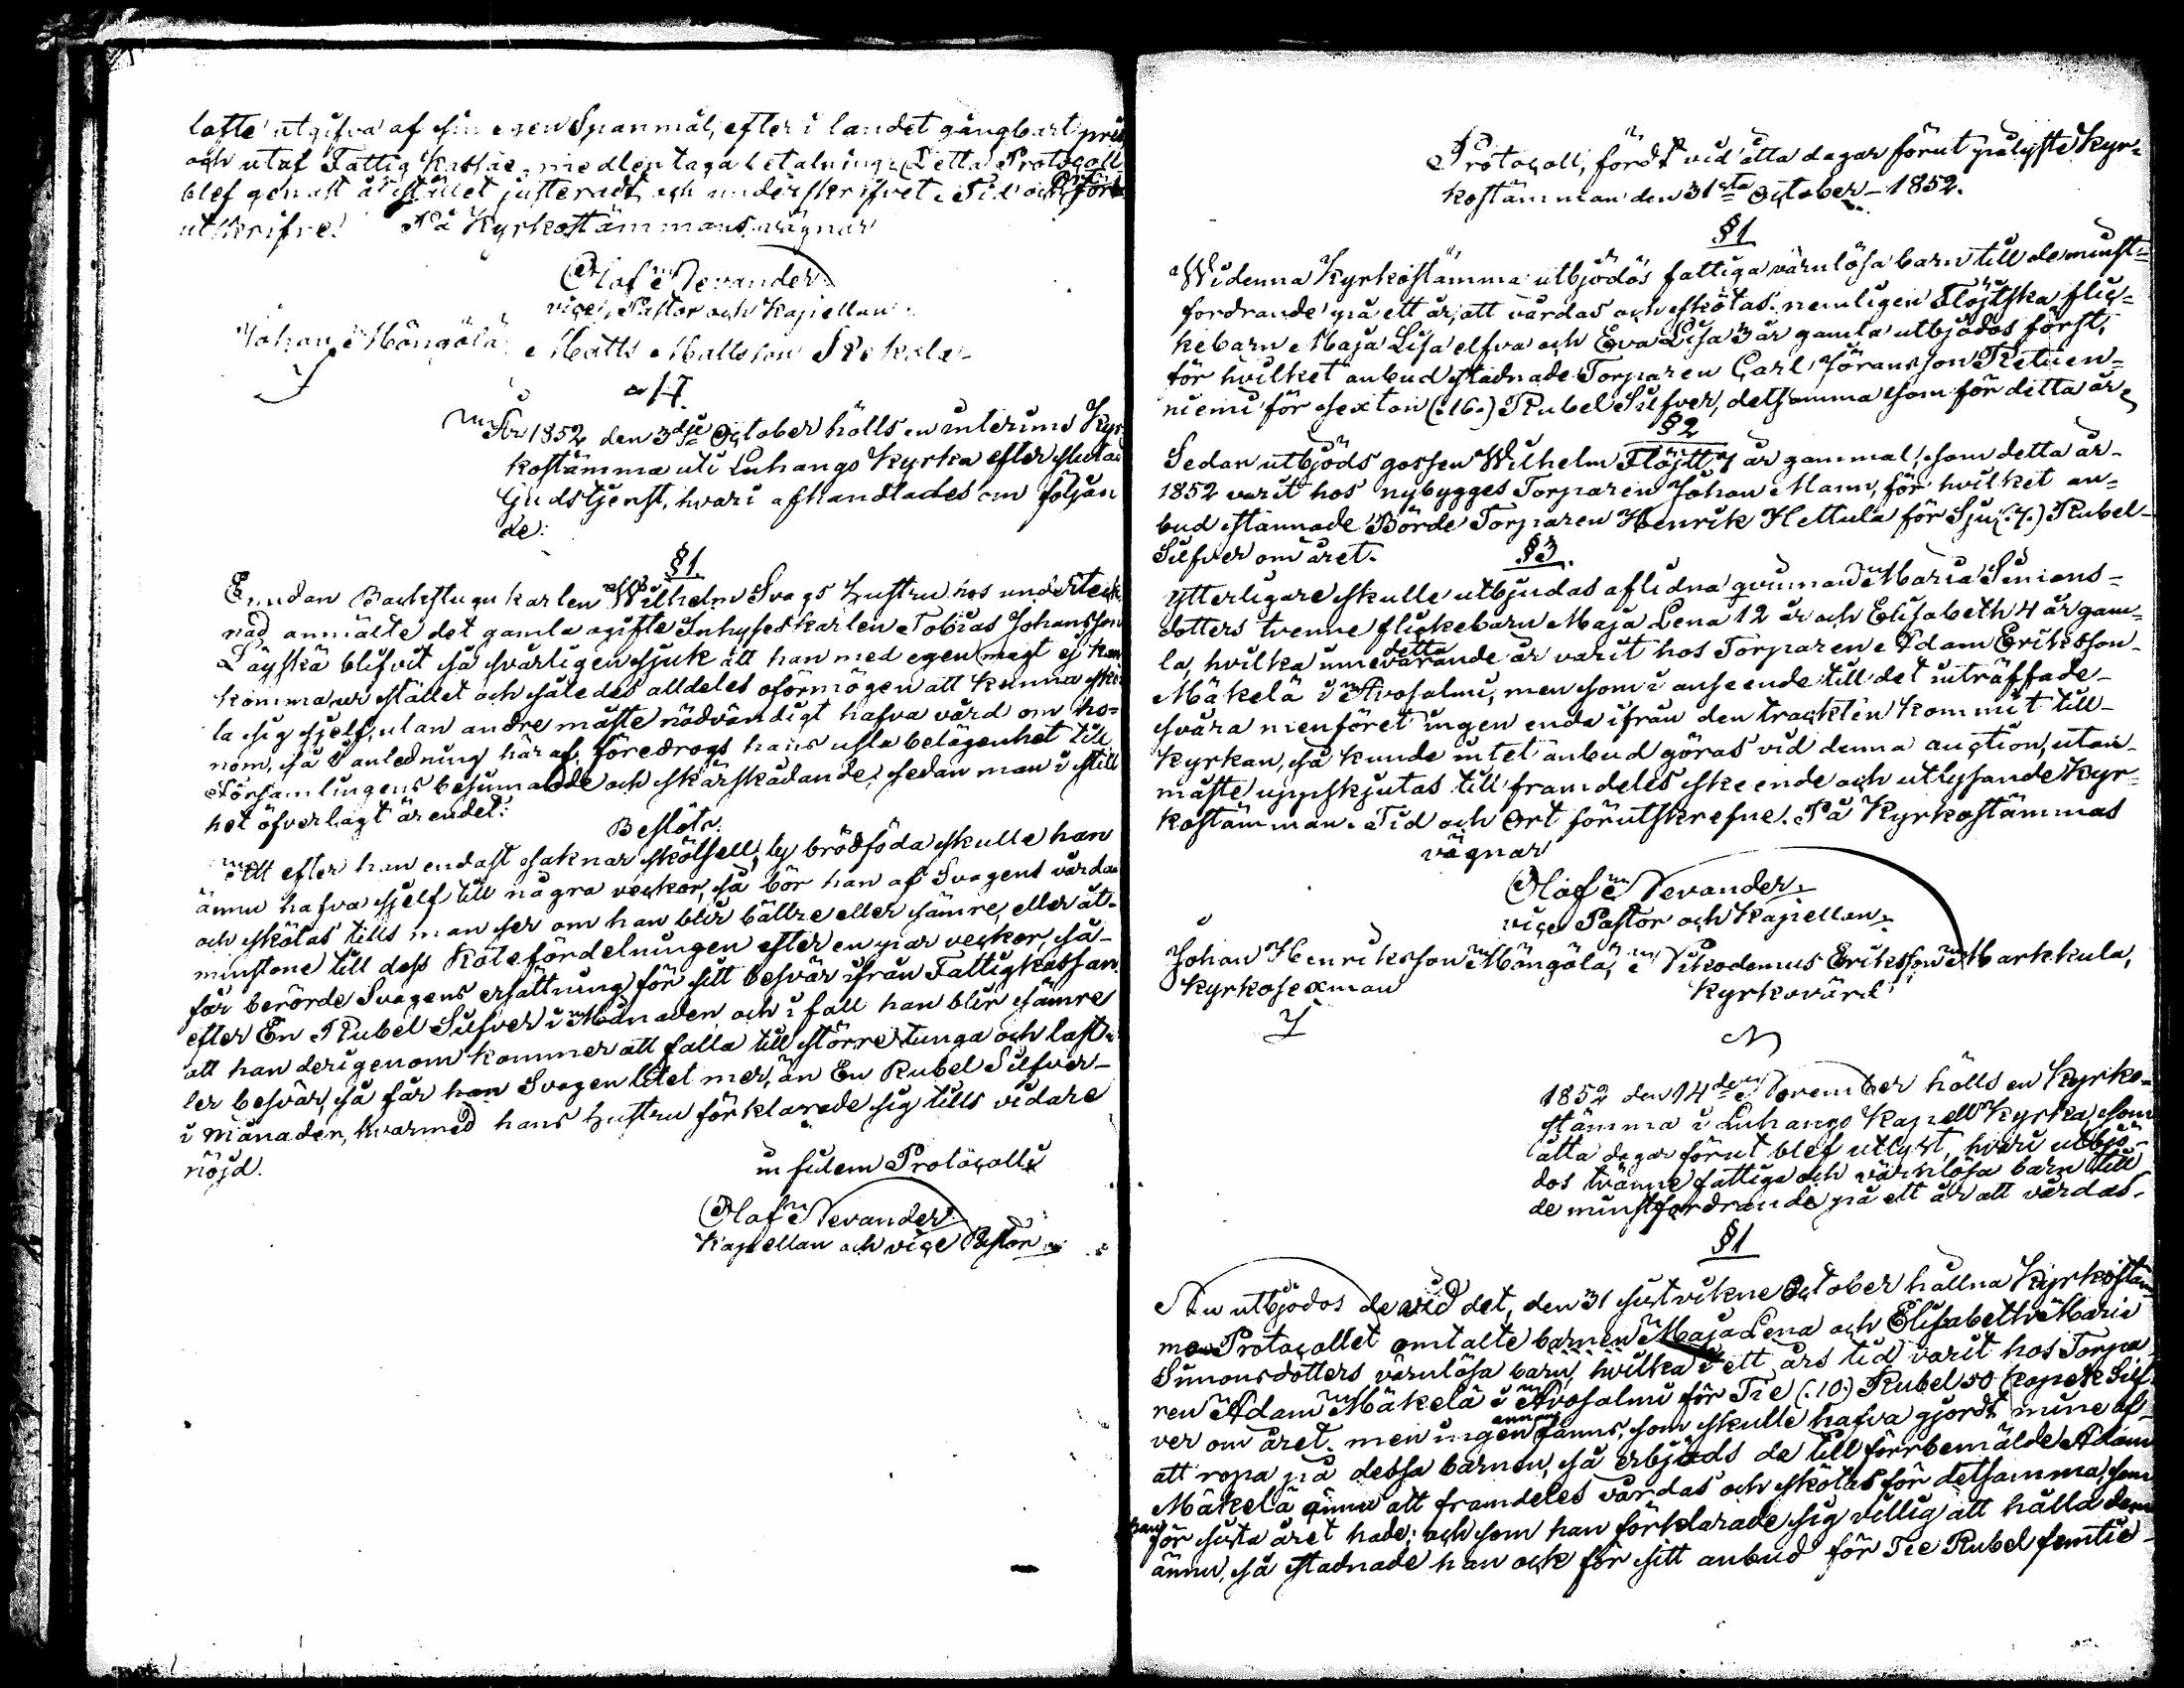 låfte utgifva af sin egen Spanmål, efter i landet gångbart pris
och utaf Fattig Kassae medlen taga betalning. Detta Protocoll
blef genast å stället justeradt och underskrifvet. Tid och Ort för-
utskrifne. På Kyrkostämmans vägnar
Olaf Nevander
vice Pastor och Kapellan.
Johan Möngölä Matts Mattsson
År 1852 den 3dje October hölls en interims Kyr-
kostämma uti Luhango Kyrka efter slutad
Gudstjenst, hvari afhandlades om följan
de:
§ 1.
Emedan Backstugu karlen Wilhelm Svags hustru hos underteck-
nad anmälte det gamla ogifte Inhyses karlen Tobias Johansson
Läyskä blifvit så svårligen sjuk att han med egen magt ej kan
komma ur stället och således alldeles oförmögen att kunna skö-
la sig sjelf, utan andre måste nödvändigt hafva vård om ho-
nom, så i anledning häraf, föredrogs hans usla belägenhet till
Församlingens besinnande och skärskådande, sedan man i still
het öfverlagt ärendet:
Beslöts:
Att efter han endast saknar skötsell, ty brödföda skulle han
ännu hafva sjelf till några veckor, så bör han af Svagens vårdas
och skötas tills man ser om han blir bättre eller sämre, eller åt-
minstone till dess Rotefördelningen efter en par veckor, så
får berörde Svagens ersättning för sitt besvär ifrån Fattigkassan
efter En Rubel Silfver i Månaden och i fall han blir sämre
att han derigenom kommer att falla till större tunga och last
ler besvär, så får han Svagen litet mer, än En Rubel Silfver
i Månaden, hvarmed hans hustru förklarade sig tills vidare
nöjd.
in fidem Protocolli
Olaf Nevander
Kapellan och vice Pastor
Protocoll, fördt vid åtta dagar förut pålyste Kyr-
kostämman den 31sta October 1852.
§ 1
Wid denna Kyrkostämma utbjödös fattiga värnlösa barn till de minst-
fordrande på ett år, att vårdas och skötas. nemligen Flöjtska flic-
kebarn Maja Lisa elfva och Eva Lisa 3 år gamla utbjödos först,
för hvilket anbud stadnade Torparen Carl Jöransson Retuen-
niemi för sexton (:16:) Rubel Silfver, detsamma som för detta år.
§ 2
Sedan utbjöds gossen Wilhelm Flöjtt 7 år gammal, som detta år
1852 varit hos nybygges Torparen Johan Mann, för hvilket an-
bud stannade Börde Torparen Henrik Hettula för Sju (:7:) Rubel
Silfver om året.
§ 3.
Ytterligare skulle utbjudas aflidna qvinnan Maria Simons-
dotters tvenne flickebarn Maja Lena 12 år och Elisabeth 4 år gam-
la, hvilka innevarande detta år varit hos Torparen Adam Eriksson
Mäkelä i Avosalmi, men som i anseende till det inträffade
svåra menföret ingen enda ifrån den trackten kommit till
kyrkan, så kunde intet anbud göras vid denna auction, utan
måste uppskjutas till framdeles skeende och utlysande Kyr-
kostämman. Tid och Ort förutskrefne. På Kyrkostämmas
vägnar
Olaf Nevander
vice Pastor och Kapellan.
Johan Henriksson Möngölä, Nikodemus Eriksson Markkula,
Kyrkosexman Kyrkovärd
1852 den 14de November hölls en Kyrko-
stämma i Luhango Kapell Kyrka, som
åtta dagar förut blef utlyst, hvari utbjö-
dos tvänne fattiga och värnlösa barn till
de minstfordrande på ett år att vårdas.
§ 1
Nu utbjödos de vid det, den 31 sistvikne October hållna Kyrkostäm-
mo Protocollet omtalte barnen Maja Lena och Elisabeth Maria
Simonsdotters värnlösa barn, hvilka i ett års tid varit hos Torpa
ren Adam Mäkelä i Avosalmi för Tie (:10:) Rubel 50 Kopek Silf-
ver om året. men ingen annan fanns, som skulle hafva gjordt mine af
att ropa på dessa barnen, så erbjöds de till förrbemälde Adam
Mäkelä ännu att framdeles vårdas och skötas för detsamma, som
han för sista året hade: och som han förklarade sig villig att hålla dem
ännu, så stadnade han ock för sitt anbud för Tie Rubel femtie